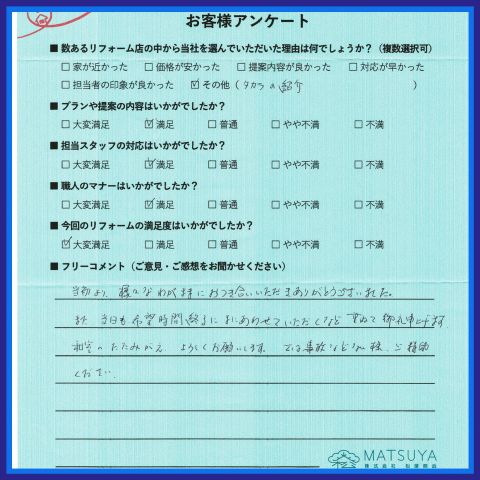 お客様アンケート
■ 数あるリフォーム店の中から当社を選んでいただいた理由は何でしょうか？（複数選択可）
□ 家が近かった □ 価格が安かった □ 提案内容が良かった □ 対応が早かった
□ 担当者の印象が良かった ☑ その他（ タカラの紹介 ）
■ プランや提案の内容はいかがでしたか？
□ 大変満足 ☑ 満足 □ 普通 □ やや不満 □ 不満
■ 担当スタッフの対応はいかがでしたか？
□ 大変満足 ☑ 満足 □ 普通 □ やや不満 □ 不満
■ 職人のマナーはいかがでしたか？
□ 大変満足 ☑ 満足 □ 普通 □ やや不満 □ 不満
■ 今回のリフォームの満足度はいかがでしたか？
☑ 大変満足 □ 満足 □ 普通 □ やや不満 □ 不満
■ フリーコメント（ご意見・ご感想をお聞かせください）
当初より、様々なわがままにおつき合いいただきありがとうございました。
また 当日も希望時間 終了にまにあわせていただくなど 重ねて御礼申し上げます
和室のたたみがえ よろしくお願いします。では事故など
ください。
MATSUYA
株式会社